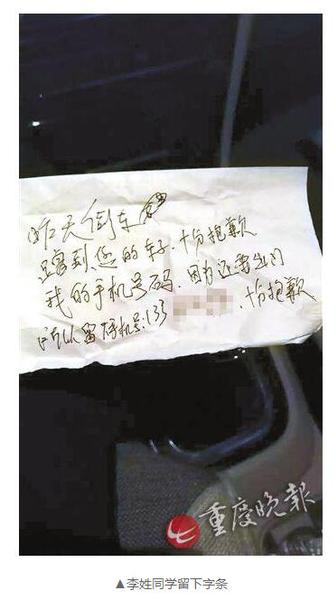 昨天倒车
蹭到您的车,十分抱歉
我的手机号码,因为还要出门
所以留手机号:133 ,十分抱歉
重慶晚報
▲李姓同学留下字条